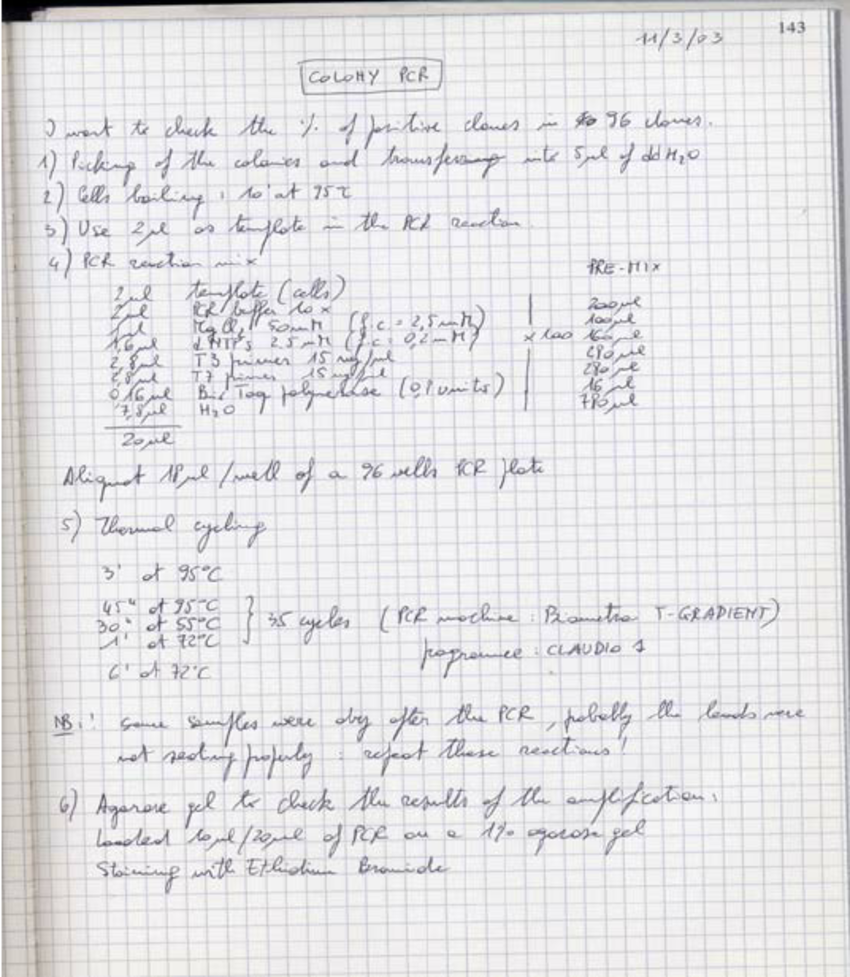 143
11/3/03
COLONY PCR
I want to check the % of positive clones in 96 clones.
1) Picking of the colonies and transferring into 5µl of ddH2O
2) Cells boiling : 10' at 95°C
3) Use 2µl as template in the PCR reaction.
4) PCR reaction mix
PRE-MIX
2µl template (cells)
2µl PCR buffer 10x 200µl
1µl MgCl2 50mM (f.c. = 2,5mM) 100µl
1,6µl dNTPs 2.5mM (f.c. 0,2mM) x 100 160µl
2,8µl T3 primer 15 ng/µl 280µl
2,8µl T7 primer 15 ng/µl 280µl
0,16µl Bio Taq polymerase (0,8 units) 16µl
7,8µl H2O 780µl
20µl
Aliquot 18µl /well of a 96 wells PCR plate
5) Thermal cycling
3' at 95°C
45" at 95°C
30" at 55°C } 35 cycles (PCR machine : Biometra T-GRADIENT)
1' at 72°C
programme : CLAUDIO 1
6' at 72°C
NB : ! some samples were dry after the PCR, probally the leads were
not sealing properly : repeat these reactions!
6) Agarose gel to check the results of the amplification:
Loaded 10µl/20µl of PCR on a 1% agarose gel
Staining with Ethidium Bromide